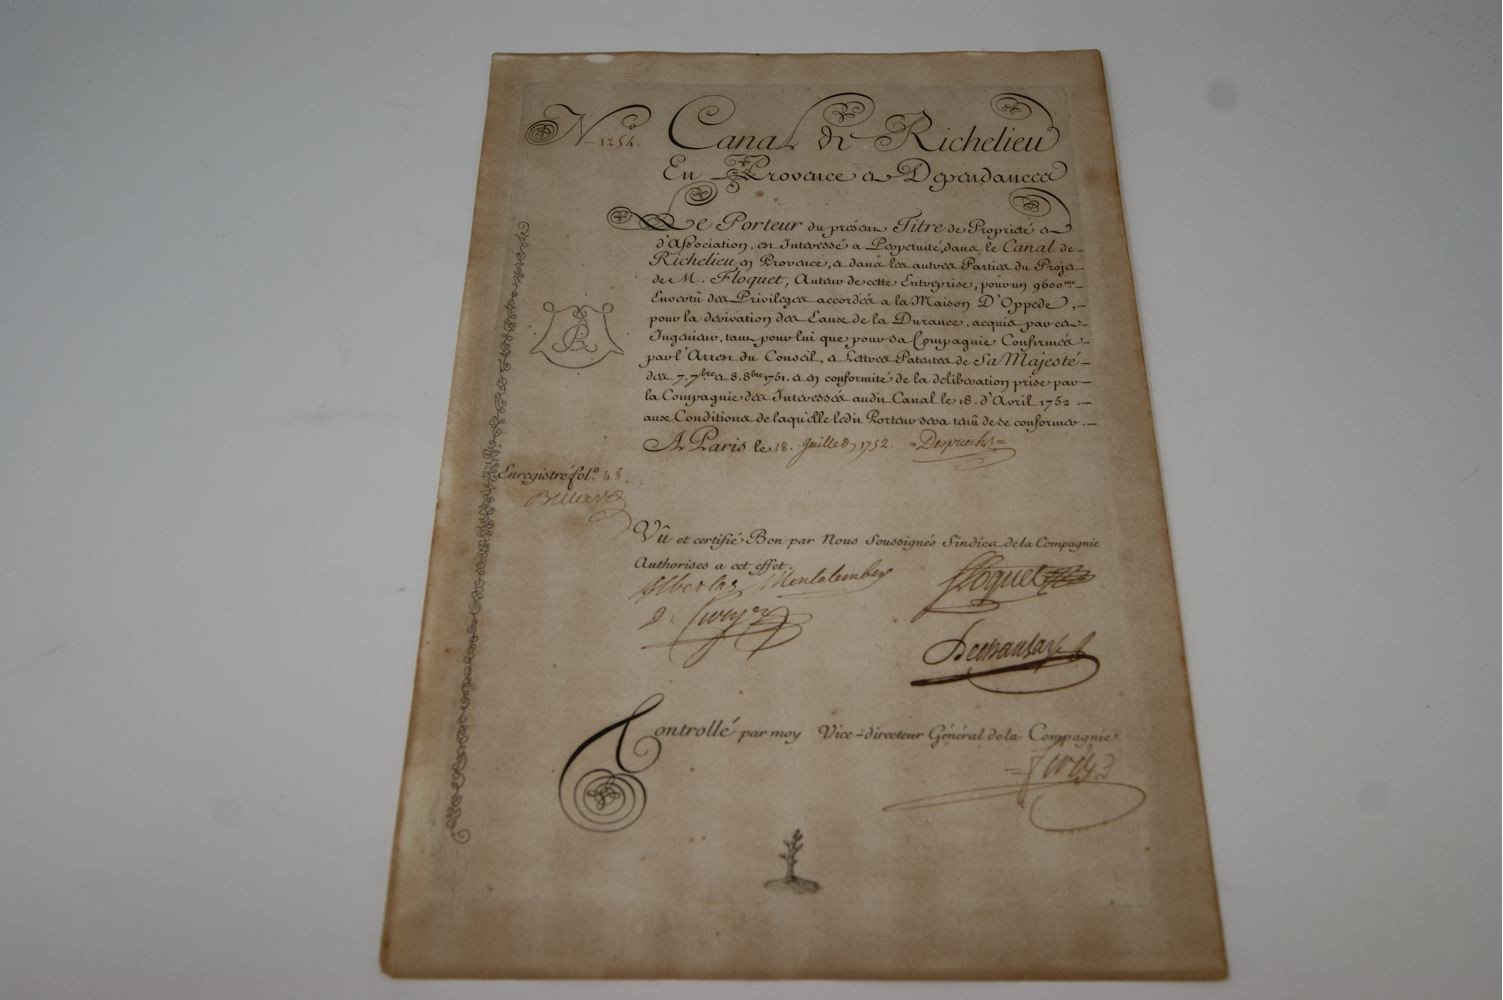 N.º 1254. Canal de Richelieu
En Provence et Dependances
Le Porteur du présent Titre de Proprieté et
d'Association, est Interessé a Perpetuité, dans le Canal de
Richelieu en Provence, et dans les autres Parties du Projet
de M. Floquet, Auteur de cette Entreprise, pour un 9600.me
Envertû des Privileges accordés a la Maison D'Oppede,
pour la derivation des Eaux de la Durance, acquis par cet
Ingenieur, tant pour lui que pour sa Compagnie Confirmés
par l'Arrest du Conseil, et Lettres Patentes de Sa Majesté
des 7. 7.bre et 8. 8bre 1751. et en conformité de la deliberation prise par
la Compagnie des Interessés audit Canal le 18. d'Avril 1752
aux Conditions de laquelle ledit Porteur sera tenû de se conformer.
A Paris le 18. Juillet 1752.
Enregistré fol.º 48.
Vû et certifié Bon par Nous Soussignés Sindics de la Compagnie
Authorises a cet effet.
Albertas Montalembert Floquet
Controllé par moy Vice-directeur Général de la Compagnie